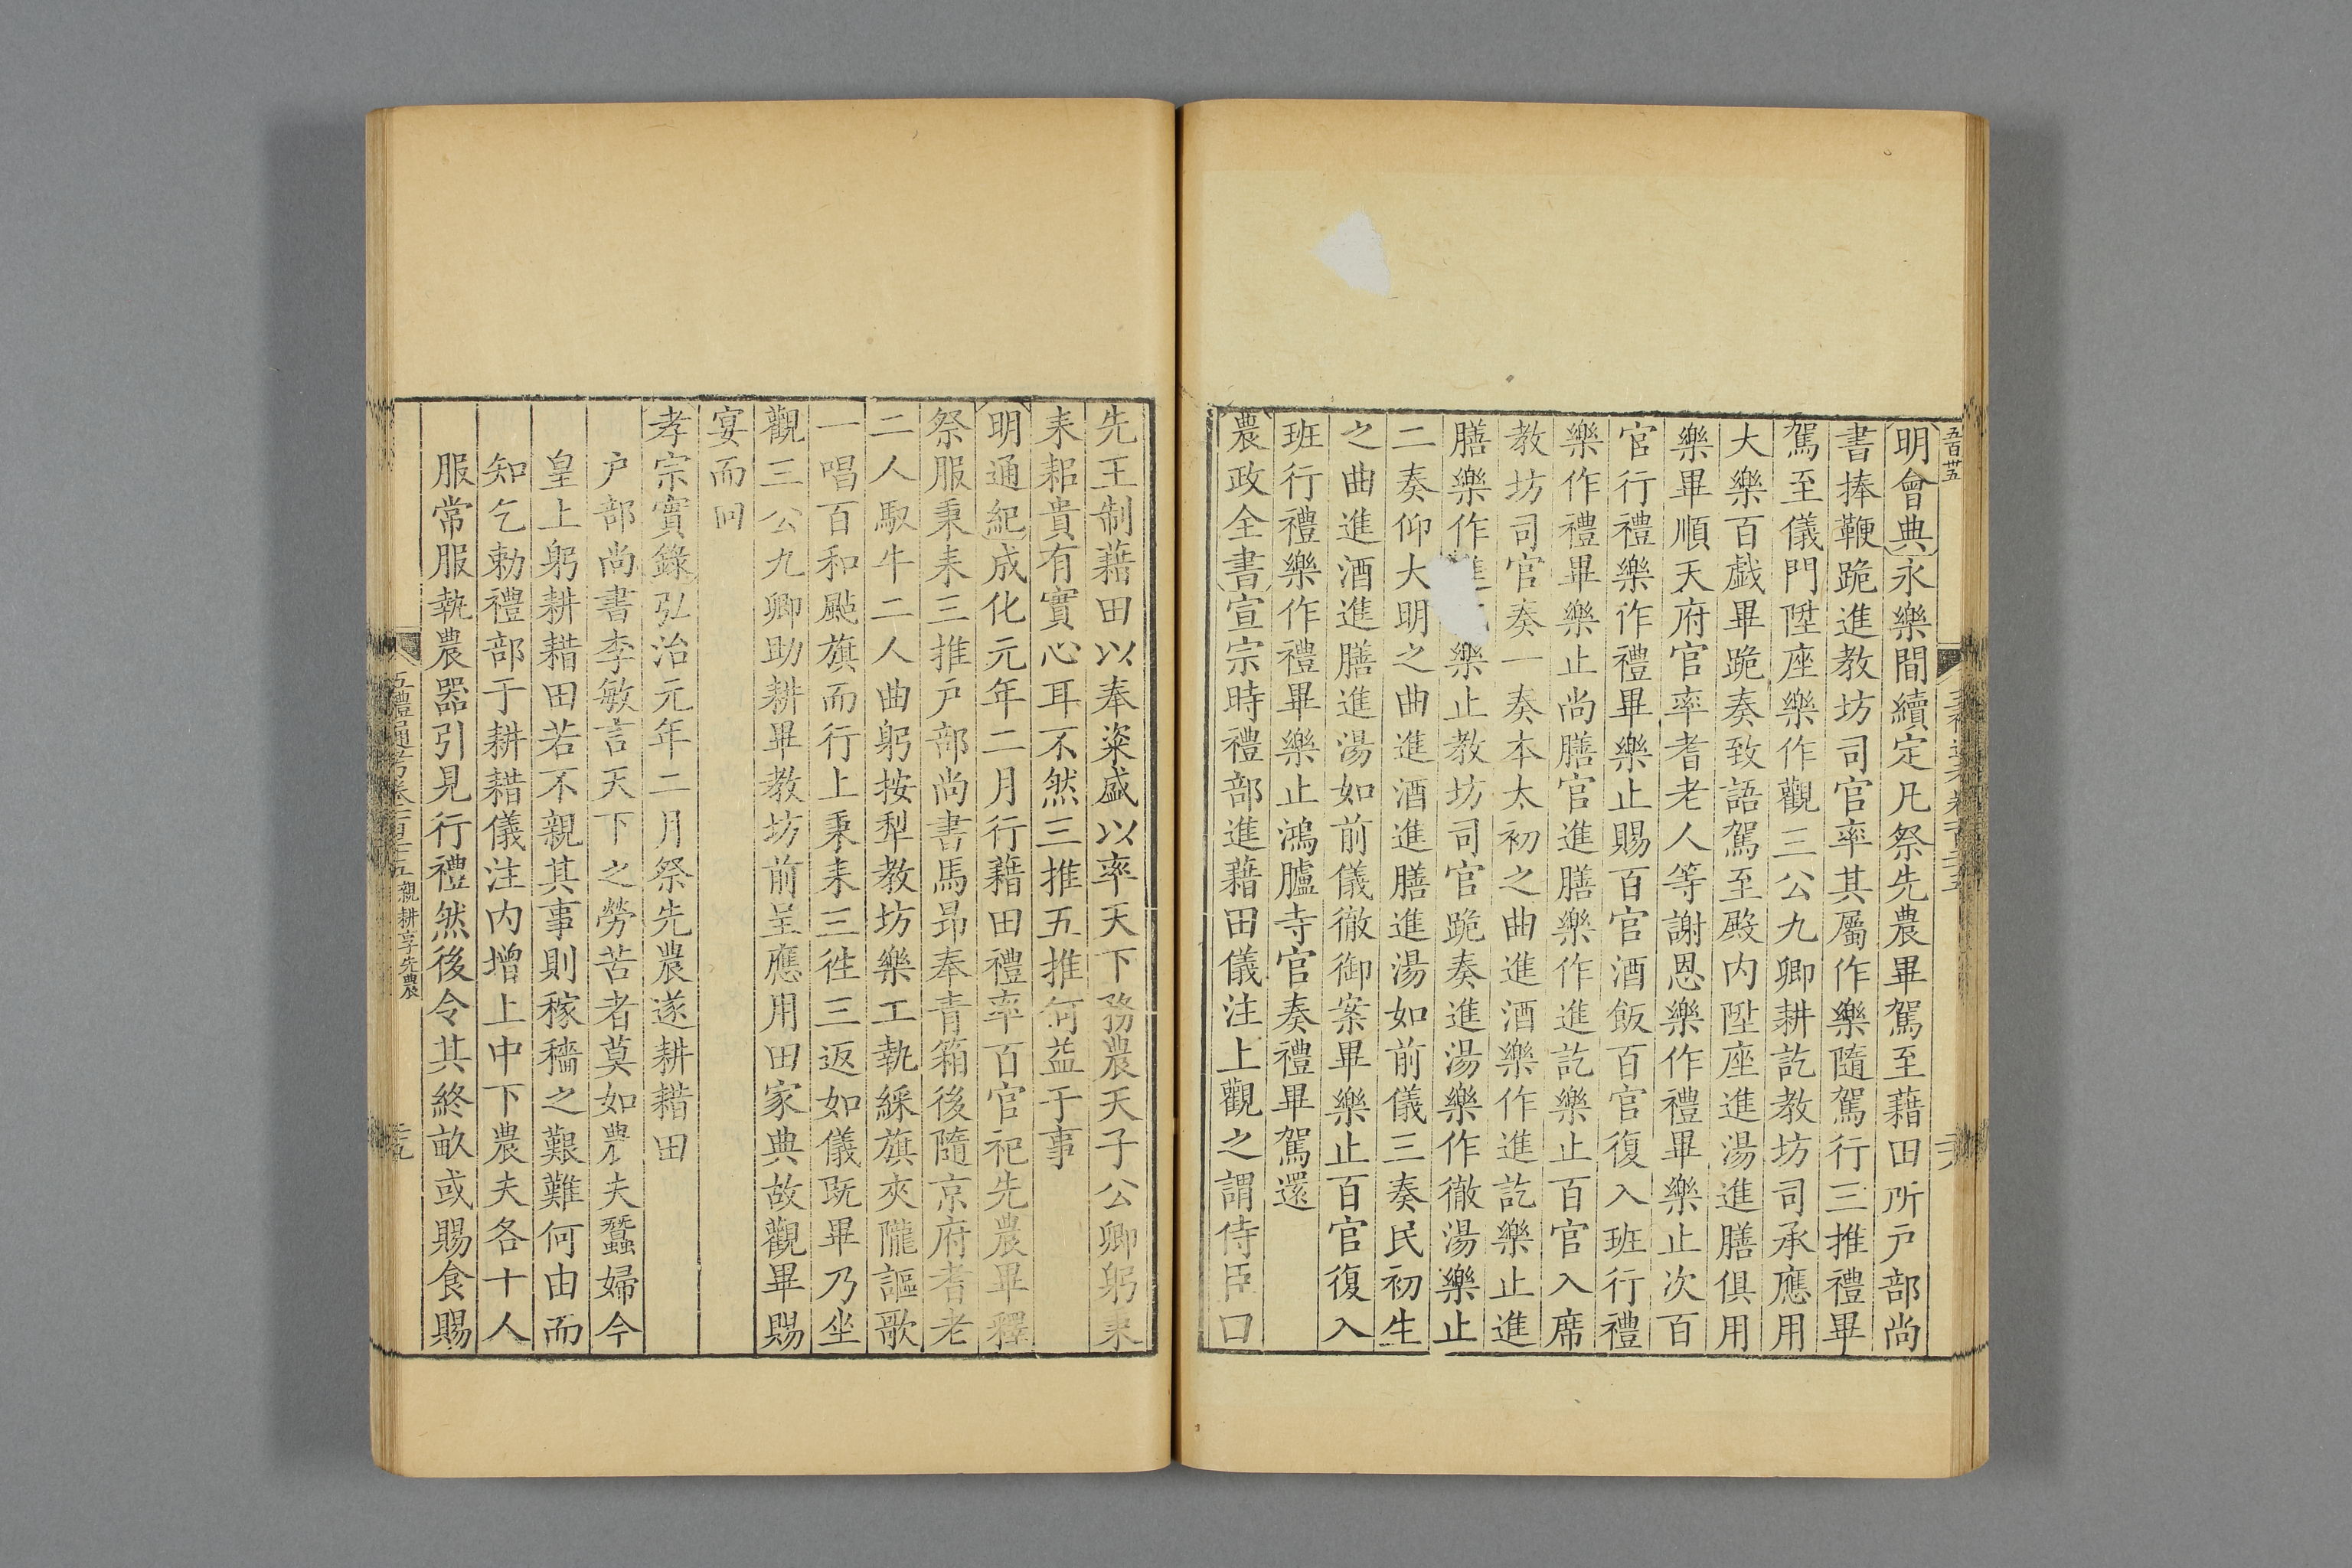 五百廿五
明會典永樂間續定凡祭先農畢駕至藉田所户部尚
書捧鞭跪進教坊司官率其屬作樂隨駕行三推禮畢
駕至儀門陞座樂作觀三公九卿耕訖教坊司承應用
大樂百戯畢跪奏致語駕至殿内陞座進湯進膳俱用
樂畢順天府官率耆老人等謝恩樂作禮畢樂止次百
官行禮樂作禮畢樂止賜百官酒飯百官復入班行禮
樂作禮畢樂止尚膳官進膳樂作進訖樂止百官入席
教坊司官奏一奏本太初之曲進酒樂作進訖樂止進
膳樂作進樂止教坊司官跪奏進湯樂作徹湯樂止
二奏仰大明之曲進酒進膳進湯如前儀三奏民初生
之曲進酒進膳進湯如前儀徹御案畢樂止百官復入
班行禮樂作禮畢樂止鴻臚寺官奏禮畢駕還
農政全書宣宗時禮部進藉田儀注上觀之謂侍臣曰
先王制藉田以奉粢盛以率天下務農天子公卿躬秉
耒耜貴有實心耳不然三推五推何益于事
明通紀成化元年二月行藉田禮率百官祀先農畢釋
祭服秉耒三推户部尚書馬昂奉青箱後隨京府耆老
二人馭牛二人曲躬按犁教坊樂工執綵旗夾隴謳歌
一唱百和颭旗而行上秉耒三徃三返如儀既畢乃坐
觀三公九卿助耕畢教坊前呈應用田家典故觀畢賜
宴而回
孝宗實錄弘治元年二月祭先農遂耕耤田
户部尚書李敏言天下之勞苦者莫如農夫蠶婦今
皇上躬耕耤田若不親其事則稼穡之艱難何由而
知乞勅禮部于耕耤儀注内增上中下農夫各十人
服常服執農器引見行禮然後令其終畝或賜食賜
五禮通考卷一百二十五 親耕享先農